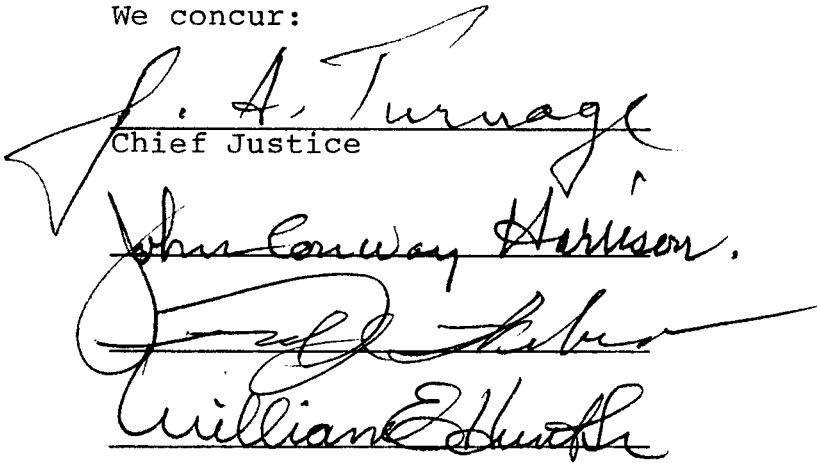 We concur:
J. A. Turnage
Chief Justice
John Conway Harrison.
William E Hunt Jr